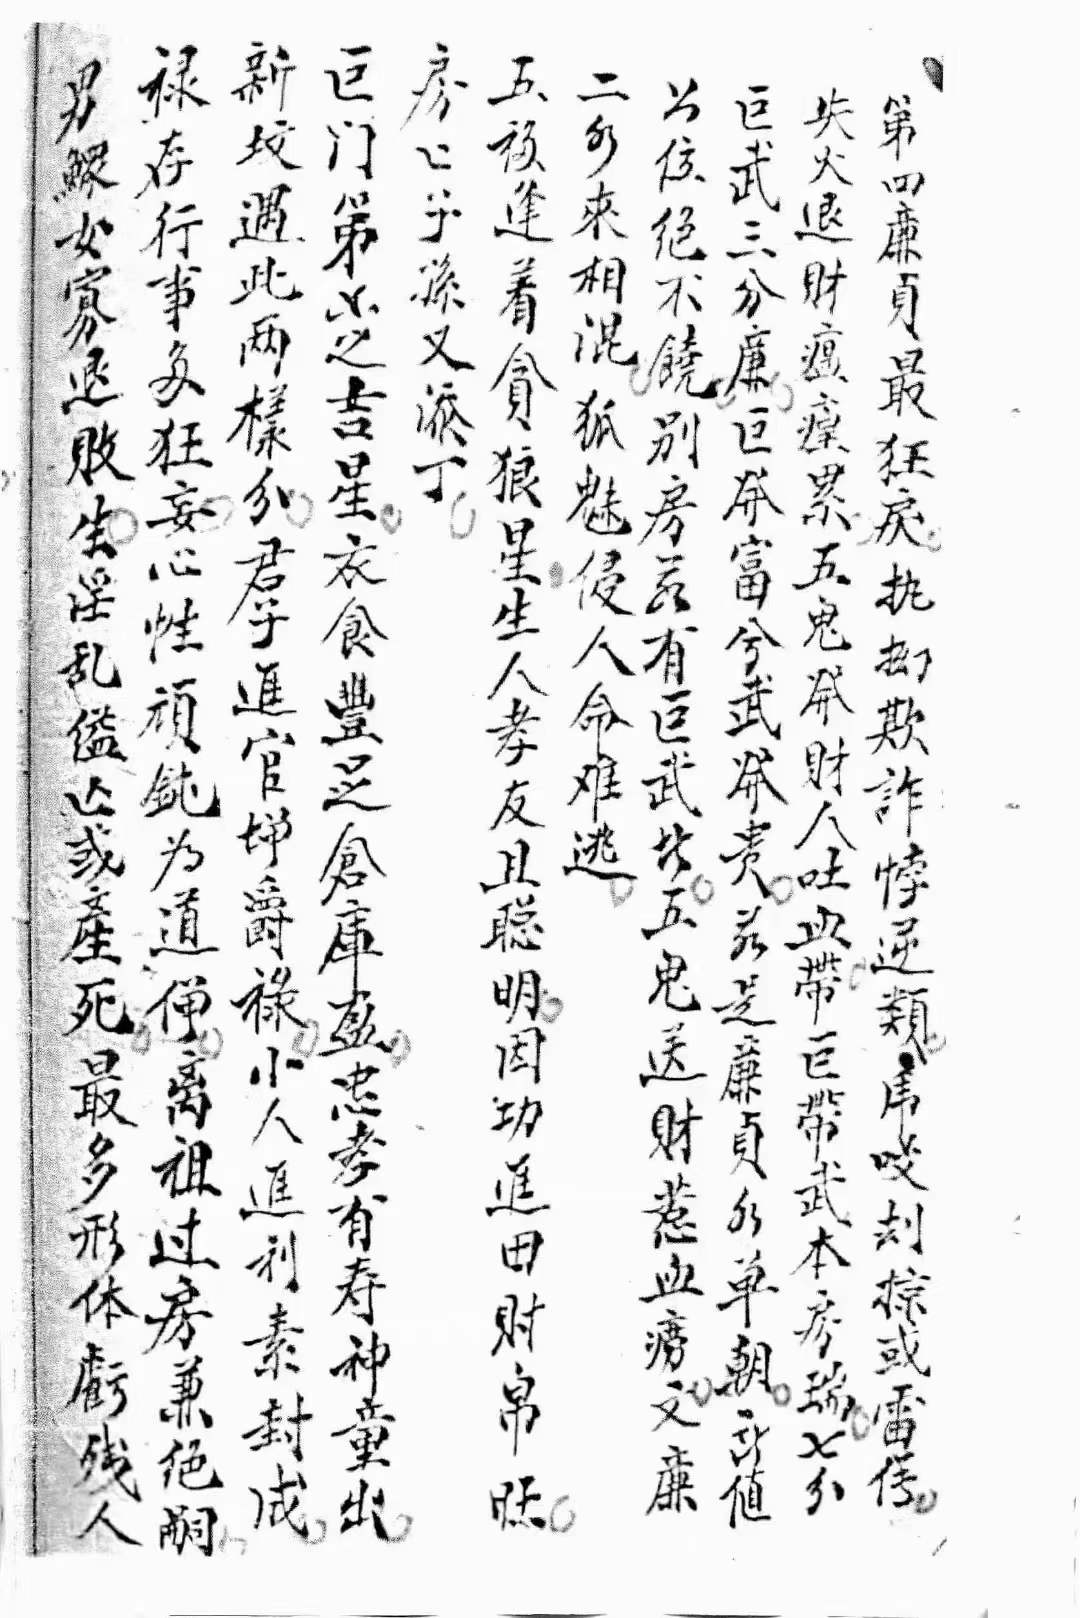 第四廉貞最狂戾执拗欺詐悖逆類虎咬刦掠或雷
失火退財瘟癀累五鬼発財人吐血帶巨帶武本房瑞七分
巨武三分廉巨発富兮武発贵若是廉貞水单朝所值
公位绝不饒别房若有巨武水五鬼送財惹血痨文廉
二水來相混狐魅侵人命难逃
五福逢着貪狼星生人孝友且聪明因功進田財帛旺
房亡乎孫又添丁
巨门第六之吉星衣食豐足倉庫盈忠孝有寿神童出
新坟遇此两樣分君子進官增爵禄小人進利素封成
禄存行事多狂妄心性頑鈍为道僧离祖过房兼绝嗣
男鰥女寡退敗生淫乱亡或產死最多形体虧残人